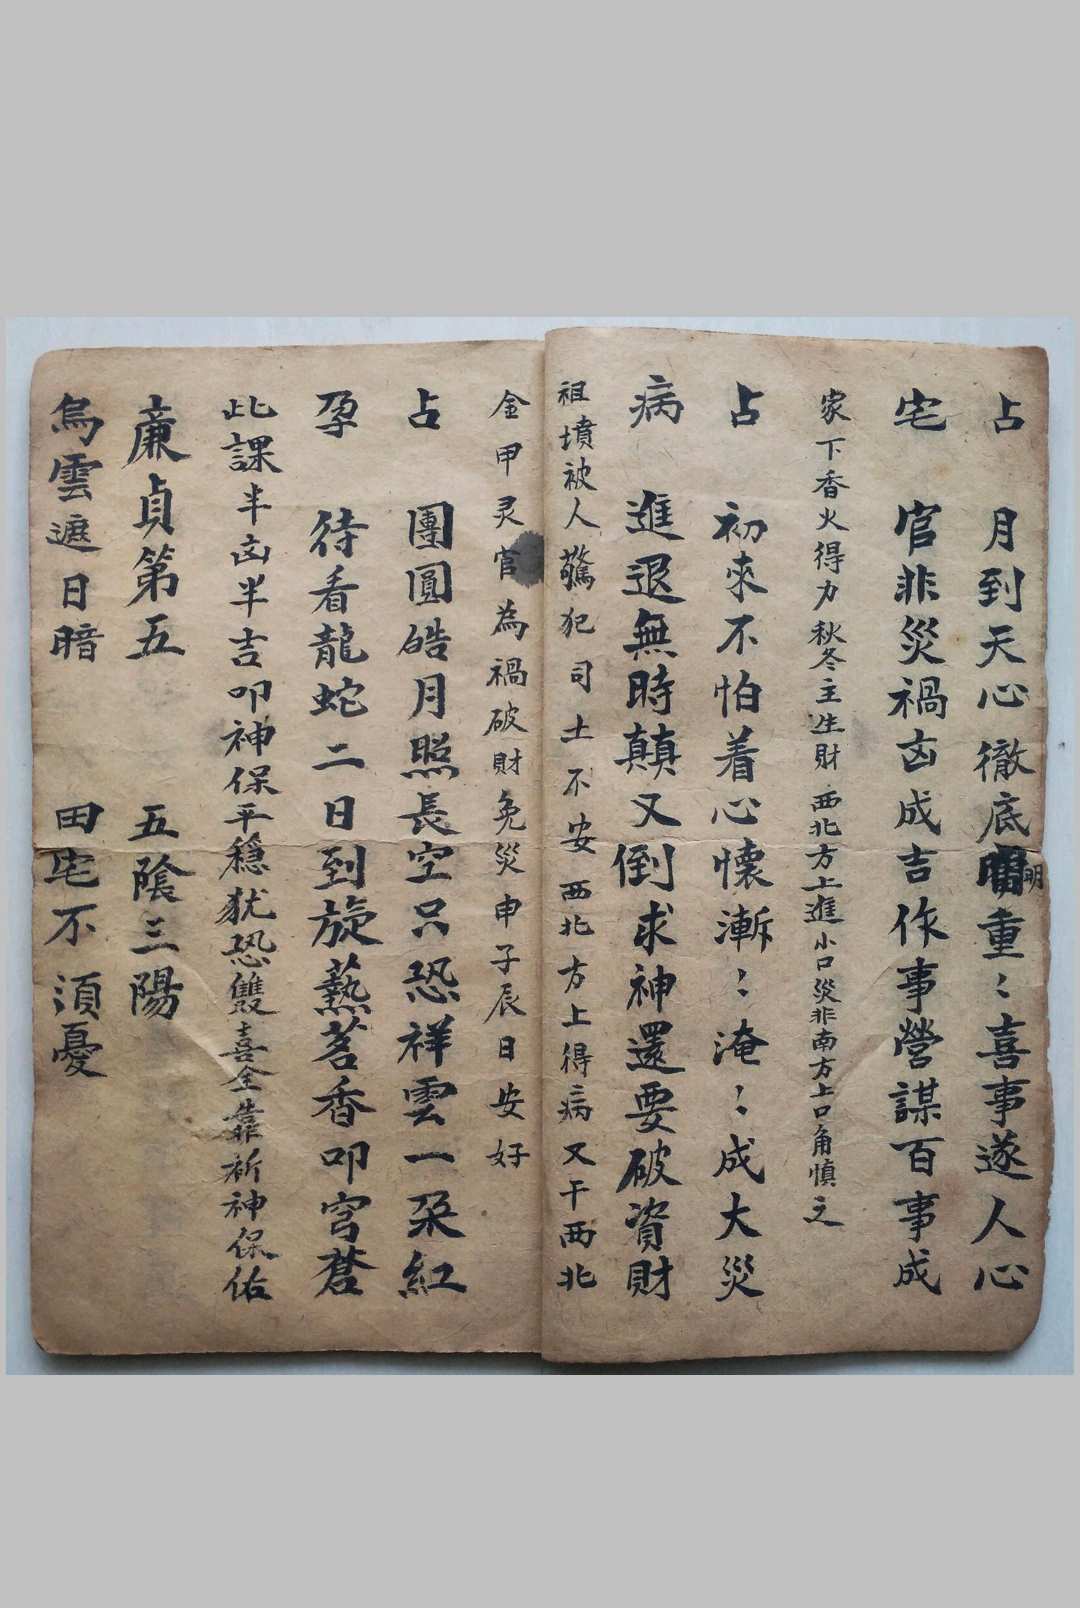 占 月到天心徹底明重〻喜事遂人心
宅 官非災禍凶成吉作事營謀百事成
家下香火得力秋冬主生財西北方上進小口災非南方上口角慎之
占 初來不怕着心懷漸〻淹〻成大災
病 進退無時顛又倒求神還要破資財
祖墳被人驚犯司土不安西北方上得病又干西北
金甲灵官為禍破財免災申子辰日安好
占 團圓皓月照長空只恐祥雲一朶紅
孕 待看龍蛇二日到旋爇茗香叩穹蒼
此課半凶半吉叩神保平穩犹恐雙喜全靠祈神保佑
廉貞第五 五陰三陽
烏雲遮日暗 田宅不須憂